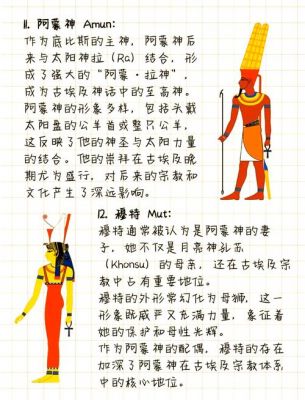 11. 阿蒙神 Amun:
作为底比斯的主神，阿蒙神后
来与太阳神拉（Ra）结合，形
成了强大的“阿蒙·拉神”，
成为古埃及神话中的至高神。
阿蒙神的形象多样，包括头戴
太阳盘的公羊首或整只公羊，
这反映了他的神圣与太阳力量
的结合。他的崇拜在古埃及晚
期尤为盛行，对后来的宗教和
文化产生了深远影响。
12. 穆特 Mut:
穆特通常被认为是阿蒙神的妻
子，她不仅是月亮神孔苏
（Khonsu）的母亲，还在古埃及宗
教中占有重要地位。
穆特的外形常幻化为母狮，这一
形象既威严又充满力量，象征着
她的保护和母性光辉。
作为阿蒙神的配偶，穆特的存在
加深了阿蒙神在古埃及宗教体系
中的核心地位。